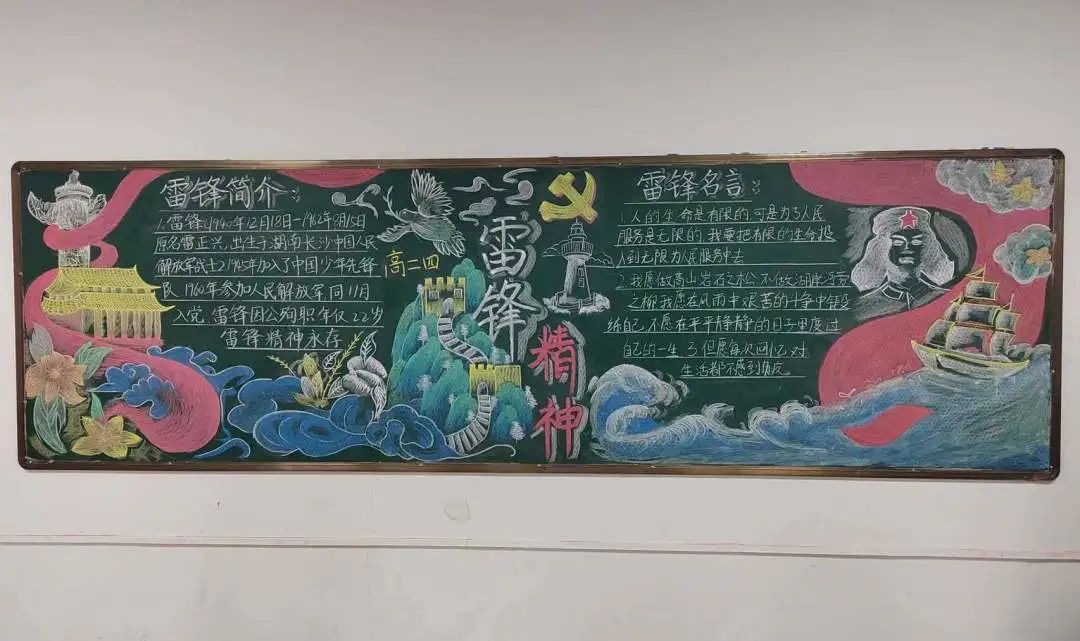 雷锋简介:
1.雷锋(1940年12月18日-1962年8月15日
原名雷正兴,出生于湖南长沙中国人民
解放军战士2 1945年加入了中国少年先锋
队 1960年参加人民解放军同11月
入党 雷锋因公殉职年仅22岁
雷锋精神永存
高二四
雷锋
精神
雷锋名言:
1.人的生命是有限的 可是为人民
服务是无限的 我要把有限的生命投
入到无限为人民服务中去
2.我愿做高山岩石之松 不做湖岸河旁
之柳 我愿在风雨中 艰苦的斗争中锻
练自己 不愿在平平静静的日子里度过
自己的一生 3.但愿每次回忆 对
生活都不感到负疚